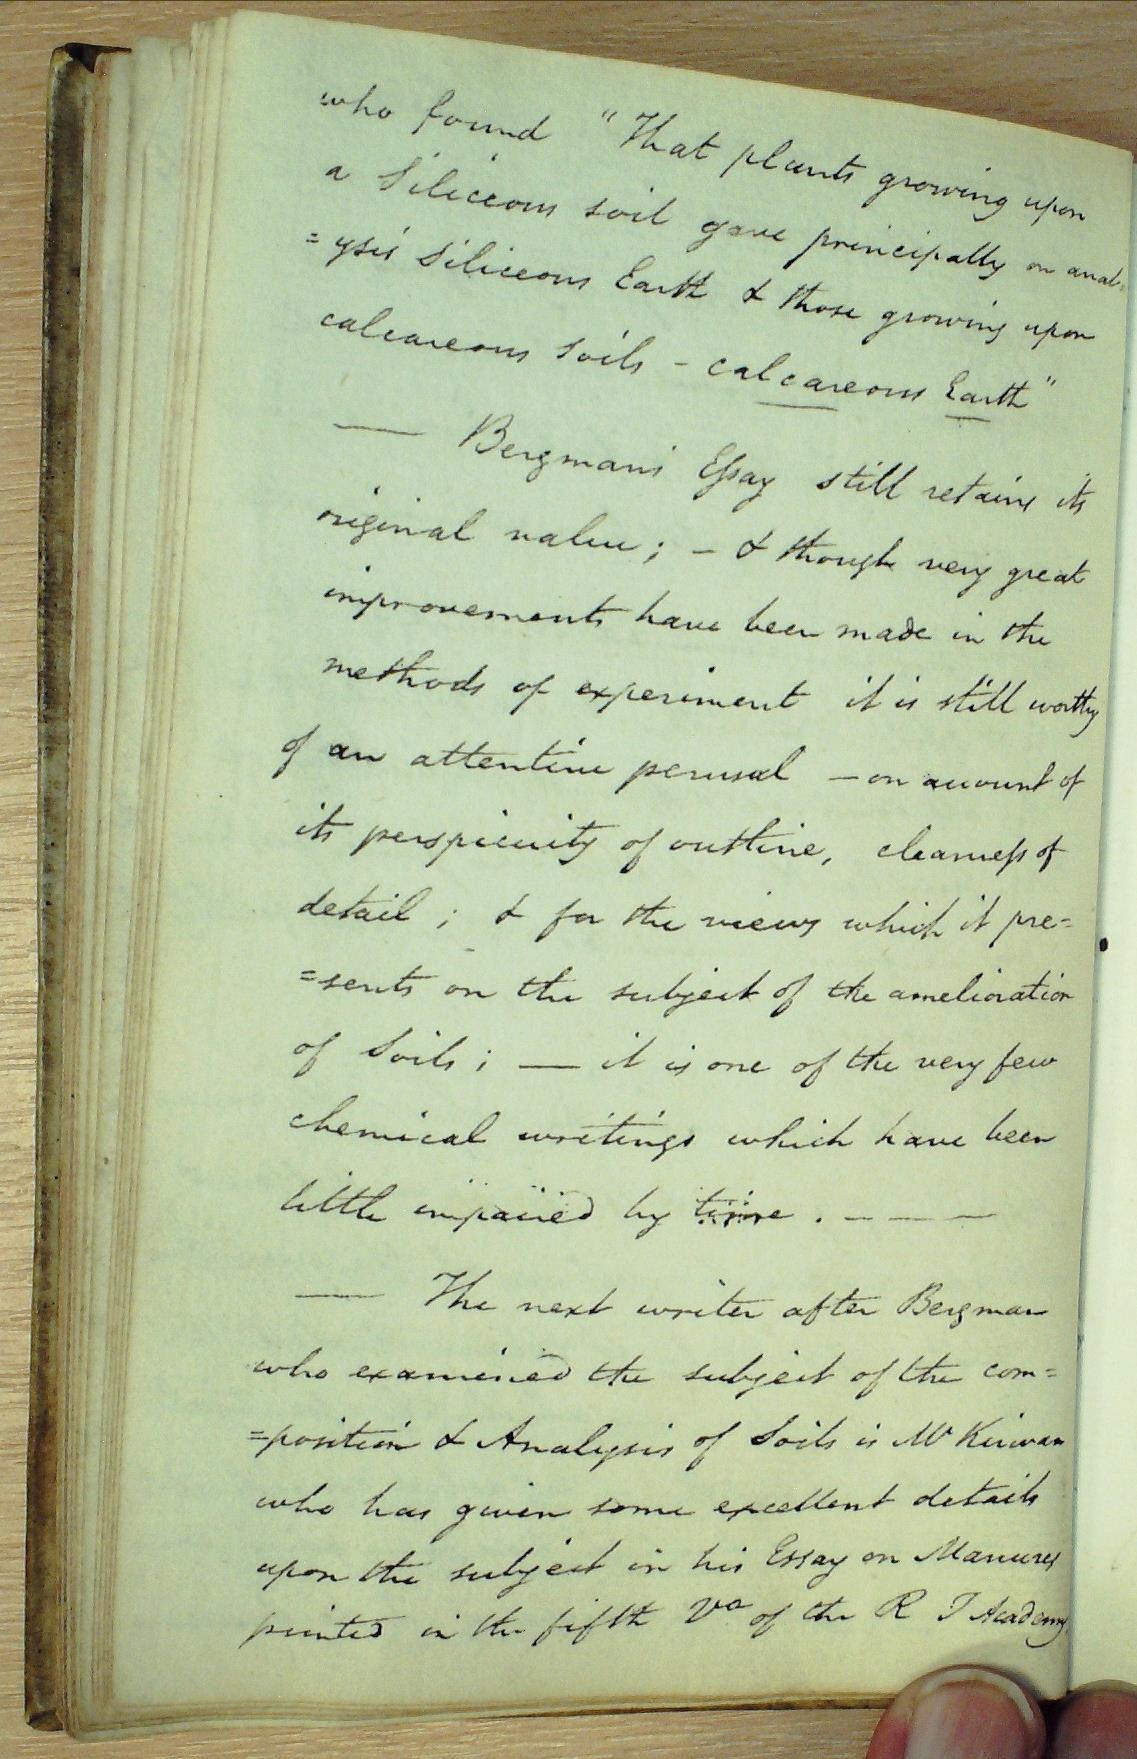 who found "That plants growing upon
a Siliceous soil gave principally on anal=
=ysis Siliceous Earth & those growing upon
calcareous Soils - calcareous Earth"
— Bergmans Eſsay still retains its
original value; - & though very great
improvements have been made in the
methods of experiment it is still worthy
of an attentive perusal — on account of
its perspicuity of outline, clearneſs of
detail; & for the views which it pre=
=sents on the subject of the amelioration
of Soils; — it is one of the very few
chemical writings which have been
little impaired by time. - — — —
— The next writer after Bergman
who examined the subject of the com=
=position & Analysis of Soils is Mr Kirwan
who has given some excellent details
upon the subject in his Essay on Manures
printed in the fifth of the R I Academy.